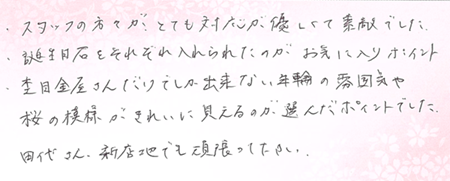 ・スタッフの方々が、とても対応が優しくて素敵でした。
・誕生日石をそれぞれ入れられたのがお気に入りポイント
・杢目金屋さんだけでしか出来ない年輪の雰囲気や
桜の模様がきれいに見えるのが選んだポイントでした。
田代さん、新店地でも頑張って下さい。